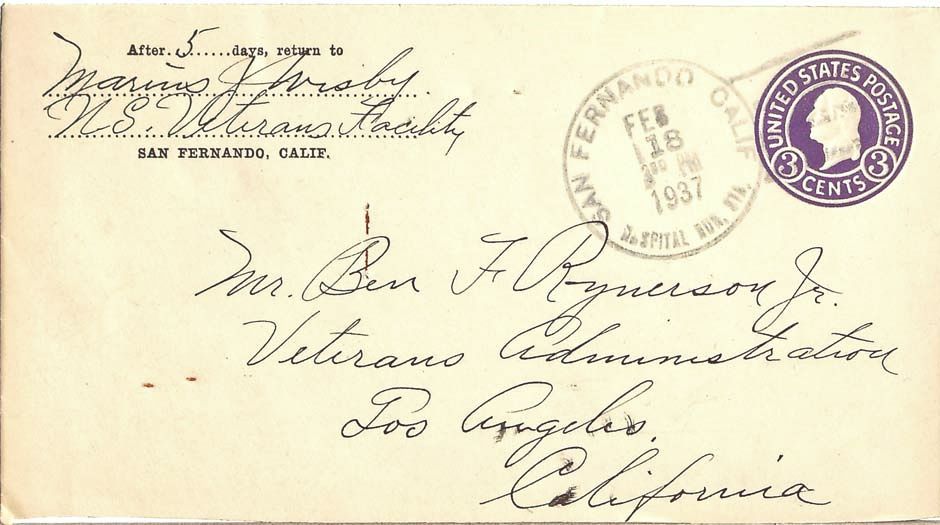 After 5 days, return to
Marius J Wisby
U.S. Veterans Facility
SAN FERNANDO, CALIF.
SAN FERNANDO CALIF
FEB
18
PM
1937
HOSPITAL RUR. STA.
UNITED STATES POSTAGE
3 CENTS 3
Mr. Ben F Rynerson Jr.
Veterans Administration
Los Angeles,
California